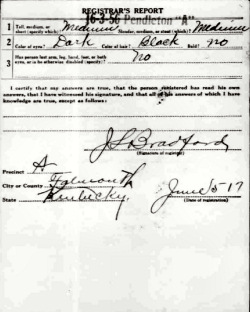 REGISTRAR'S REPORT
16-3-56 Pendleton "A"
1 Tall, medium, or short (specify which)? Medium Slender, medium, or stout (which)? Medium
2 Color of eyes? Dark Color of hair? Black Bald? No
3 Has person lost arm, leg, hand, foot, or both eyes, or is he otherwise disabled (specify)? No
I certify that my answers are true, that the person registered has read his own
answers, that I have witnessed his signature, and that all of his answers of which I have
knowledge are true, except as follows:
J S Bradford
(Signature of registrar)
Precinct A
City or County Falmouth
State Kentucky
June 5 17
(Date of registration)